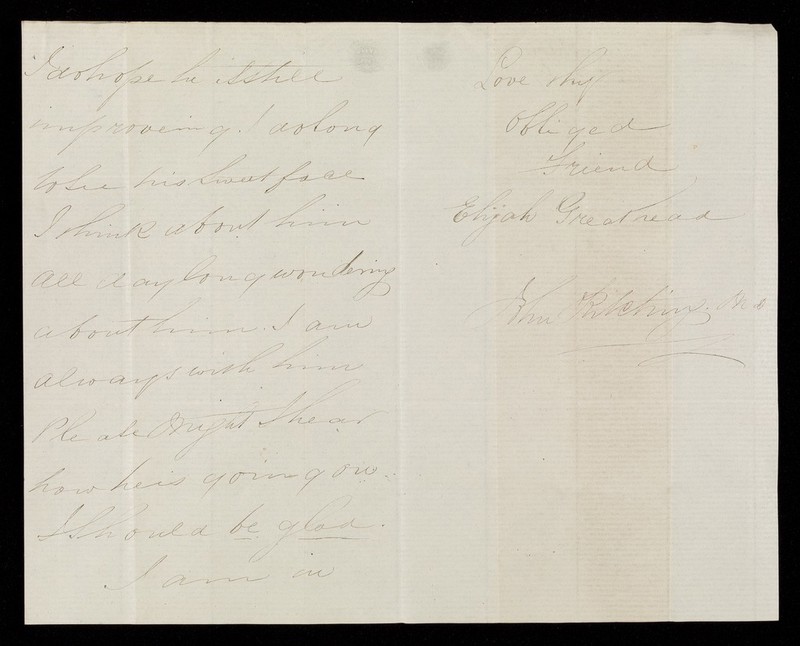 I do hope he is still
improveing. I do long
to see his sweet face
I think about him
all day long wondering
about him. I am
always with him
Please Might I hear
how he is going on.
I Should be glad.
I am in
Love thy
Obliged
Friend
Elijah Greathead
John Kitching.